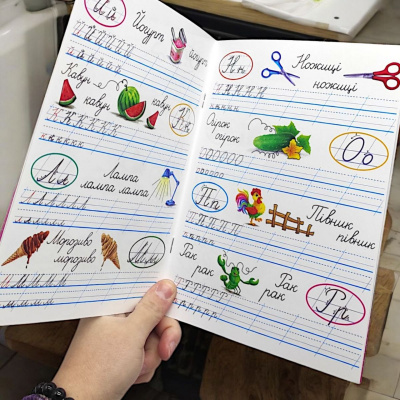 Йй
Йогурт
йогурт
Й Й Й Й Й Й
й й й й й й
Кавун
кавун кавун
Кк
К К К К К К
к к к к к к
Лл
Лампа
лампа лампа
Л Л Л Л Л Л
л л л л л л
Морозиво
морозиво
Мм
М М М М М
м м м м м
Нн
Ножиці
ножиці
Н Н Н Н Н
н н н н н
Огірок
огірок
Оо
О О О О О О
о о о о о о
Пп
Півник
півник
П П П П П
п п п п п
Рак
рак
Рак
рак
Рр
Р Р Р Р Р Р
р р р р р р